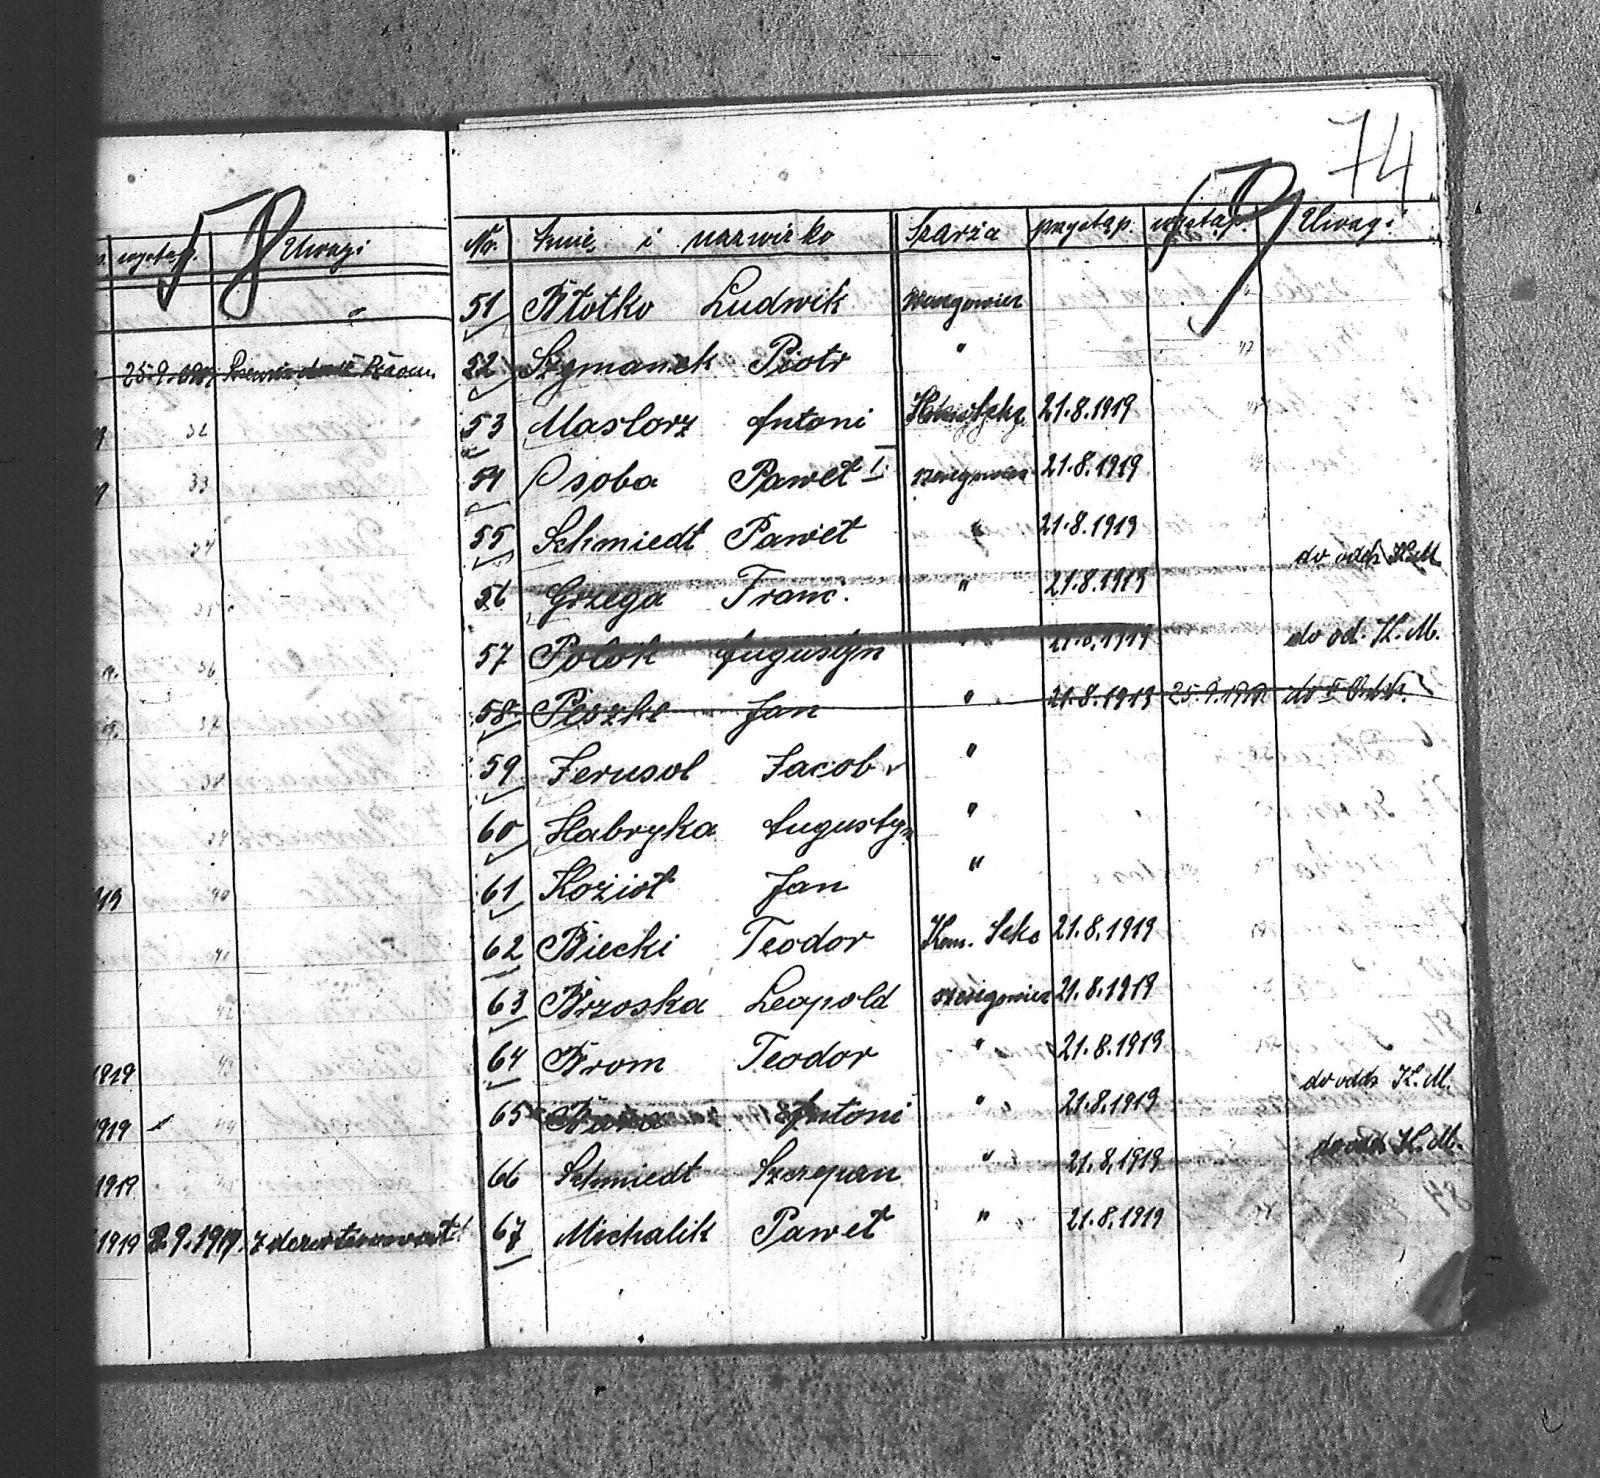 74
58
59
wystąp. Uwagi
25.9.1919
32
33
34
36
37
1919
1919
1919
1919 2.9.1919. zdezerterował!
No. Imię i nazwisko Szarża przystąp. wystąp. Uwagi
51 Błotko Ludwik szeregowiec
52 Szymanek Piotr "
53 Maslorz Antoni 21.8.1919
54 Osoba Paweł I. szeregowiec 21.8.1919
55 Schmiedt Paweł " 21.8.1919
56 Grzega Franc. " 21.8.1919 do oddz. K.M.
57 Polok Augustyn " 21.8.1919 do od. K.M.
58 Peszke Jan " 21.8.1919 25.9.1919
59 Ferusol Jacob "
60 Habryka Augustyn "
61 Kozioł Jan "
62 Biecki Teodor Kom. Sekc 21.8.1919
63 Brzoska Leopold szeregowiec 21.8.1919
64 Brom Teodor " 21.8.1919
65 Antoni " 21.8.1919 do oddz K.M.
66 Schmiedt Szczepan " 21.8.1919 do oddz K.M.
67 Michalik Paweł " 21.8.1919